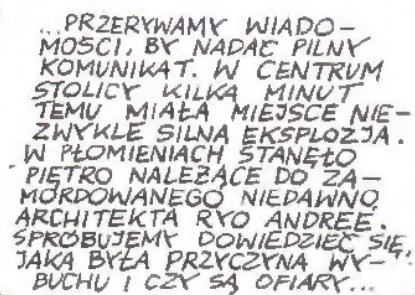 ...PRZERYWAMY WIADO-
MOŚCI, BY NADAĆ PILNY
KOMUNIKAT. W CENTRUM
STOLICY KILKA MINUT
TEMU MIAŁA MIEJSCE NIE-
ZWYKLE SILNA EKSPLOZJA.
W PŁOMIENIACH STANĘŁO
PIĘTRO NALEŻĄCE DO ZA-
MORDOWANEGO NIEDAWNO
ARCHITEKTA RYO ANDREE.
SPRÓBUJEMY DOWIEDZIEĆ SIĘ,
JAKA BYŁA PRZYCZYNA WY-
BUCHU I CZY SĄ OFIARY...